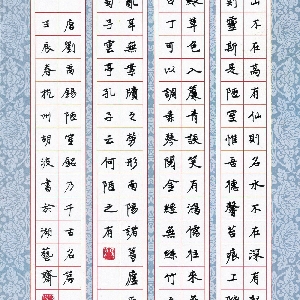 山不在高有仙則名水不在深有
則靈斯是陋室惟吾德馨苔痕上
綠草色入簾青談笑有鴻儒往來
白丁可以調素琴閱金經無絲竹
亂耳無案牘之勞形南陽諸葛廬
子雲亭孔子云何陋之有
唐劉禹錫陋室銘乃千古名篇
壬辰春杭州胡波書於藝齋